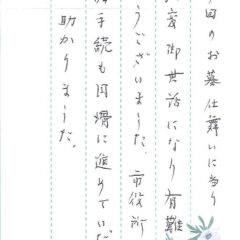 回のお墓仕舞いに当り
度御世話になり有難
うございました。市役所
手続も円滑に進めていただ
助かりました。